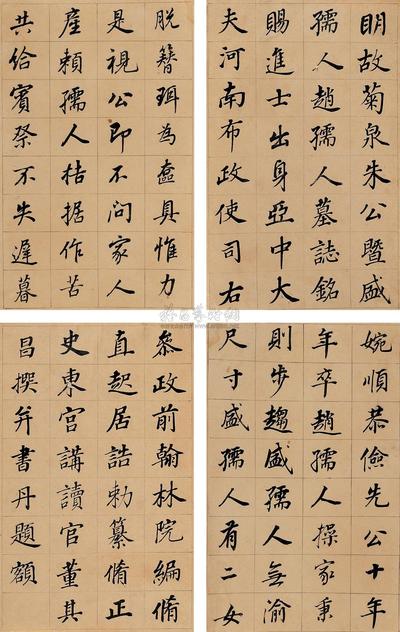 明故菊泉朱公暨盛
孺人趙孺人墓誌銘
賜進士出身亞中大
夫河南布政使司右
脫簪珥為具惟力
是視公即不問家人
產賴孺人拮据作苦
共給賓祭不失遲暮
婉順恭儉先公十年
年卒趙孺人操家秉
則步趨盛孺人無渝
尺寸盛孺人有二女
叅政前翰林院編脩
直起居誥勅纂脩正
史東宮講讀官董其
昌撰并書丹題額